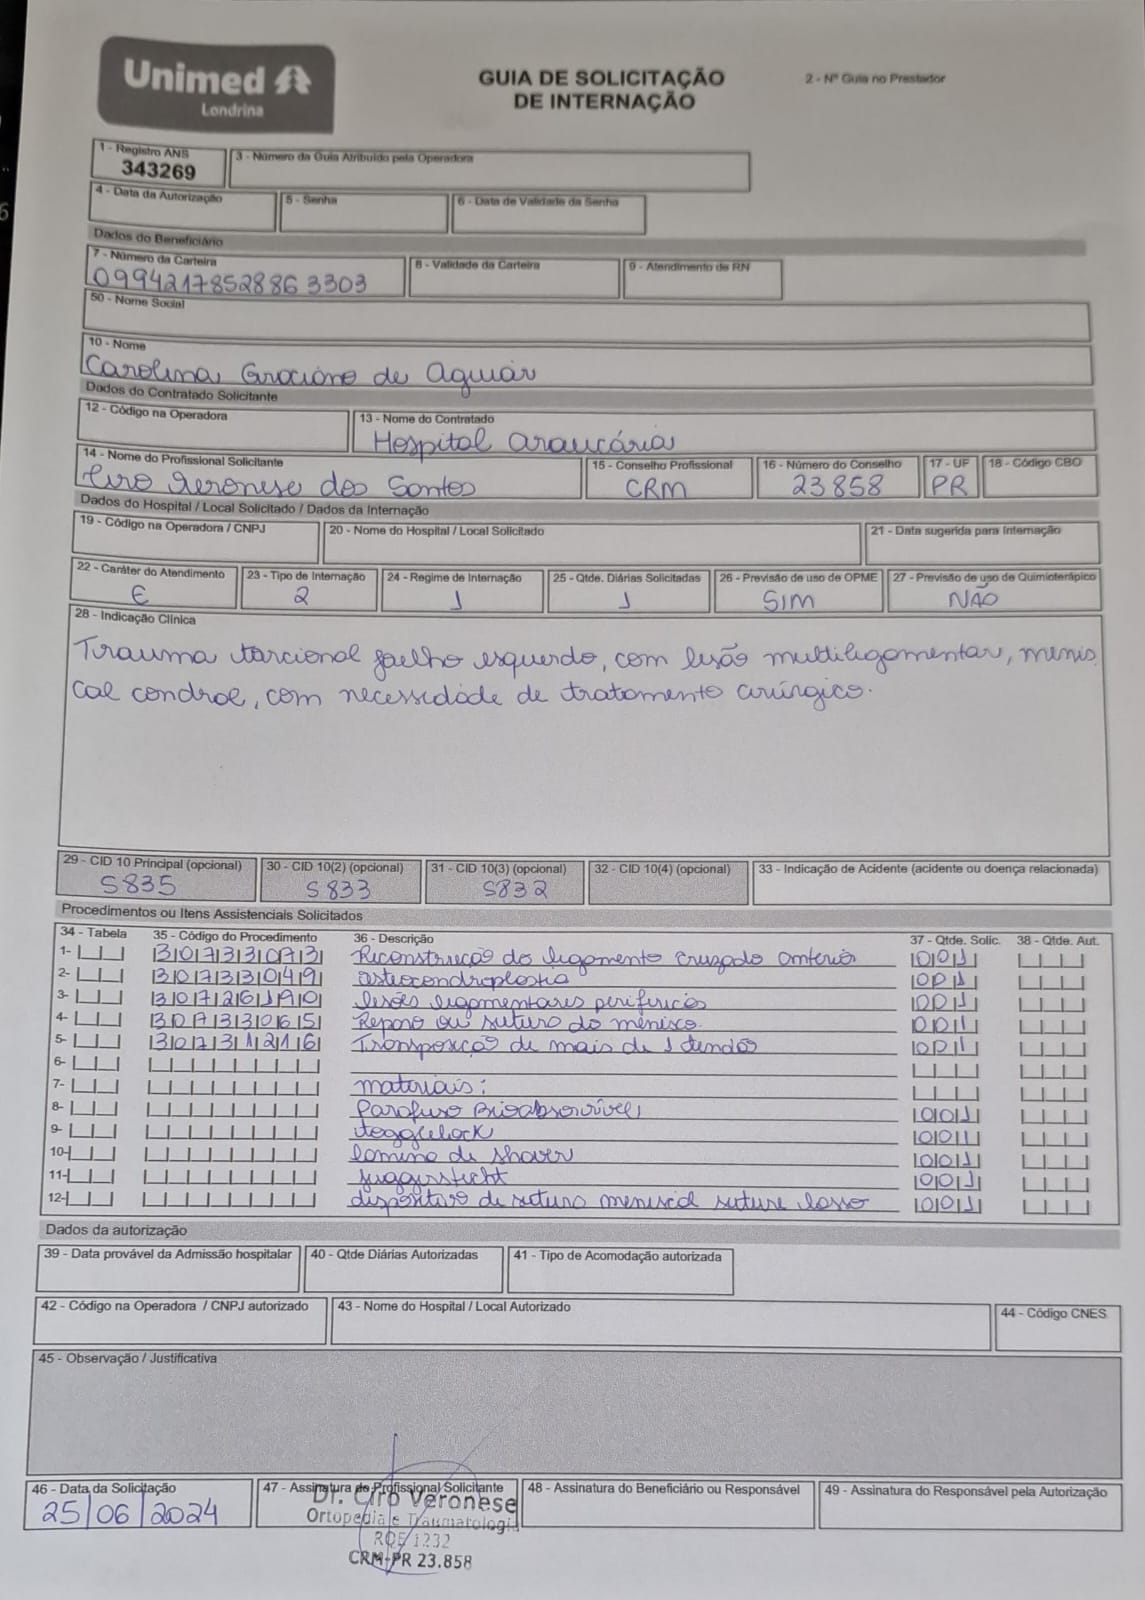 Unimed
Londrina
GUIA DE SOLICITAÇÃO
DE INTERNAÇÃO
2 - Nº Guia no Prestador
1 - Registro ANS
343269
3 - Número da Guia Atribuído pela Operadora
4 - Data da Autorização
5 - Senha
6 - Data de Validade da Senha
Dados do Beneficiário
7 - Número da Carteira
09942178528863303
8 - Validade da Carteira
9 - Atendimento de RN
50 - Nome Social
10 - Nome
Carolina Graciano de Aguiar
Dados do Contratado Solicitante
12 - Código na Operadora
13 - Nome do Contratado
Hospital Araucária
14 - Nome do Profissional Solicitante
Ciro Veronese dos Santos
15 - Conselho Profissional
CRM
16 - Número do Conselho
23858
17 - UF
PR
18 - Código CBO
Dados do Hospital / Local Solicitado / Dados da Internação
19 - Código na Operadora / CNPJ
20 - Nome do Hospital / Local Solicitado
21 - Data sugerida para Internação
22 - Caráter do Atendimento
E
23 - Tipo de Internação
2
24 - Regime de Internação
1
25 - Qtde. Diárias Solicitadas
1
26 - Previsão de uso de OPME
SIM
27 - Previsão de uso de Quimioterápico
NÃO
28 - Indicação Clínica
Trauma torcional joelho esquerdo, com lesão multiligamentar, menis
cal condral, com necessidade de tratamento cirúrgico.
29 - CID 10 Principal (opcional)
S835
30 - CID 10(2) (opcional)
S833
31 - CID 10(3) (opcional)
S832
32 - CID 10(4) (opcional)
33 - Indicação de Acidente (acidente ou doença relacionada)
Procedimentos ou Itens Assistenciais Solicitados
34 - Tabela 35 - Código do Procedimento 36 - Descrição 37 - Qtde. Solic. 38 - Qtde. Aut.
1- 30733073 Reconstrução do ligamento cruzado anterio 001
2- 30733049 osteocondroplastia 001
3- 30726190 lesões ligamentares periféricas 001
4- 30733065 Reparo ou sutura do menisco. 001
5- 30731216 Transposição de mais de 1 tendão 001
6-
7- materiais:
8- Parafuso Bioabsorvível 001
9- togglelock 001
10- lamina de shaver 001
11- juggersticht 001
12- dispositivo de sutura meniscal suture lasso 001
Dados da autorização
39 - Data provável da Admissão hospitalar
40 - Qtde Diárias Autorizadas
41 - Tipo de Acomodação autorizada
42 - Código na Operadora / CNPJ autorizado
43 - Nome do Hospital / Local Autorizado
44 - Código CNES
45 - Observação / Justificativa
46 - Data da Solicitação
25/06/2024
47 - Assinatura do Profissional Solicitante
Dr. Ciro Veronese
Ortopedia e Traumatologia
RQE 1232
CRM-PR 23.858
48 - Assinatura do Beneficiário ou Responsável
49 - Assinatura do Responsável pela Autorização